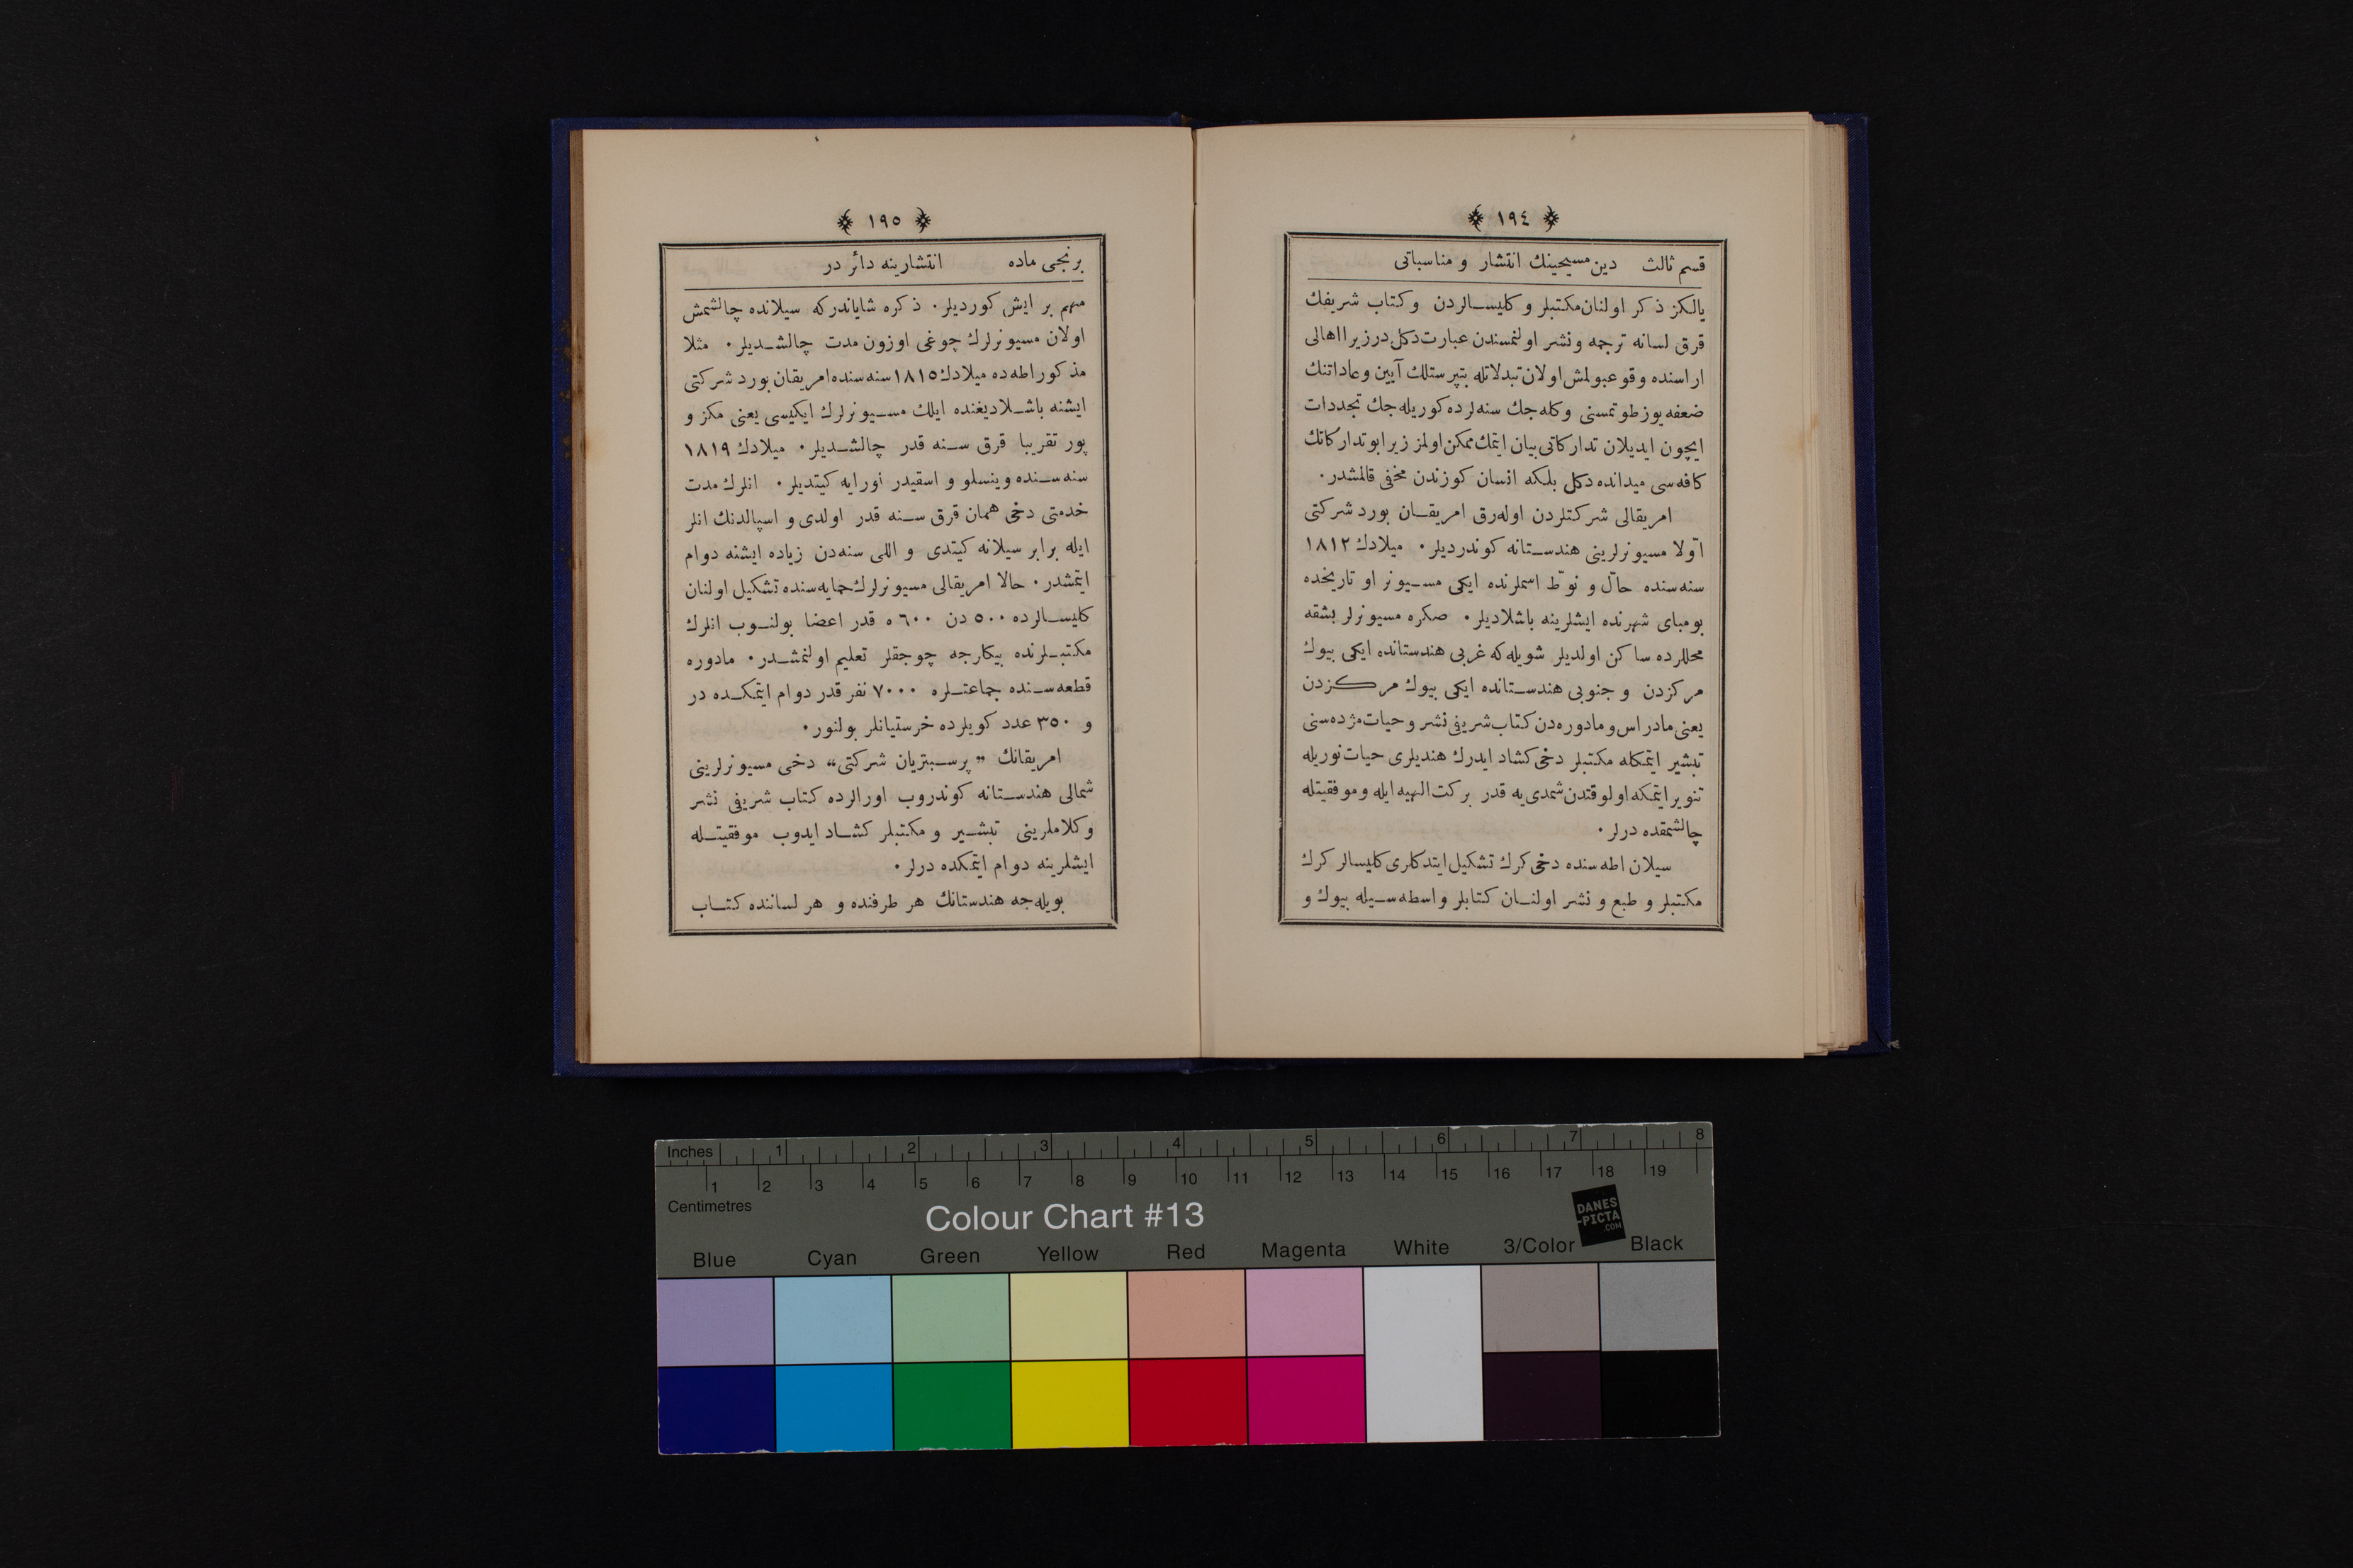 ١٩٤
قسم ثالث دين مسيحينك انتشار و مناسباتى
يالكز ذكر اولنان مكتبلر و كليسالردن و كتاب شريفك
قرق لسانه ترجمه و نشر اولنمسندن عبارت دكل در زيرا اهالى
اراسنده وقوعبولمش اولان تبدلاتله بتپرستلك آيين و عاداتنك
ضعفه يوز طوتمسنى و كله جك سنه لرده كوريله جك تجددات
ايچون ايديلان تداركاتى بيان ايتمك ممكن اولمز زيرا بو تداركاتك
كافه سى ميدانده دكل بلكه انسان كوزندن مخفى قالمشدر ٠
امريقالى شركتلردن اوله رق امريقان بورد شركتى
اوّلا مسيونرلرينى هندستانه كوندرديلر ٠ ميلادك ١٨١٢
سنه سنده حاّل و نوّط اسملرنده ايكى مسيونر او تاريخده
بومباى شهرنده ايشلرينه باشلاديلر ٠ صكره مسيونرلر بشقه
محللرده ساكن اولديلر شويله كه غربى هندستانده ايكى بيوك
مركزدن و جنوبى هندستانده ايكى بيوك مركزدن
يعنى مادراس و مادوره دن كتاب شريفى نشر و حيات مژده سنى
تبشير ايتمكله مكتبلر دخى كشاد ايدرك هنديلرى حيات نوريله
تنوير ايتمكه اولوقتدن شمدى يه قدر بركت الهيه ايله و موفقيتله
چالشمقده درلر ٠
سيلان اطه سنده دخى كرك تشكيل ايتدكلرى كليسالر كرك
مكتبلر و طبع و نشر اولنان كتابلر واسطه سيله بيوك و
١٩٥
برنجى ماده انتشارينه دائر در
مهم بر ايش كورديلر ٠ ذكره شاياندركه سيلانده چالشمش
اولان مسيونرلرك چوغى اوزون مدت چالشديلر ٠ مثلا
مذكور اطه ده ميلادك ١٨١٥ سنه سنده امريقان بورد شركتى
ايشنه باشلاديغنده ايلك مسيونرلرك ايكيسى يعنى مكز و
پور تقريبا قرق سنه قدر چالشديلر ٠ ميلادك ١٨١٩
سنه سنده وينسلو و اسقيدر اورايه كيتديلر ٠ انلرك مدت
خدمتى دخى همان قرق سنه قدر اولدى و اسپالدنك انلر
ايله برابر سيلانه كيتدى و اللى سنه دن زياده ايشنه دوام
ايتمشدر ٠ حالا امريقالى مسيونرلرك حمايه سنده تشكيل اولنان
كليسالرده ٥٠٠ دن ٦٠٠ ه قدر اعضا بولنوب انلرك
مكتبلرنده بيكلرجه چوجقلر تعليم اولنمشدر ٠ مادوره
قطعه سنده جماعتلره ٧٠٠٠ نفر قدر دوام ايتمكده در
و ٣٥٠ عدد كويلرده خرستيانلر بولنور ٠
امريقانك ” پرسبتريان شركتى “ دخى مسيونرلرينى
شمالى هندستانه كوندروب اورالرده كتاب شريفى نشر
و كلاملرينى تبشير و مكتبلر كشاد ايدوب موفقيتله
ايشلرينه دوام ايتمكده درلر ٠
بويله جه هندستانك هر طرفنده و هر لساننده كتاب
Inches 1 2 3 4 5 6 7 8
1 2 3 4 5 6 7 8 9 10 11 12 13 14 15 16 17 18 19
Centimetres
Colour Chart #13
DANES
-PICTA
.COM
Blue Cyan Green Yellow Red Magenta White 3/Color Black